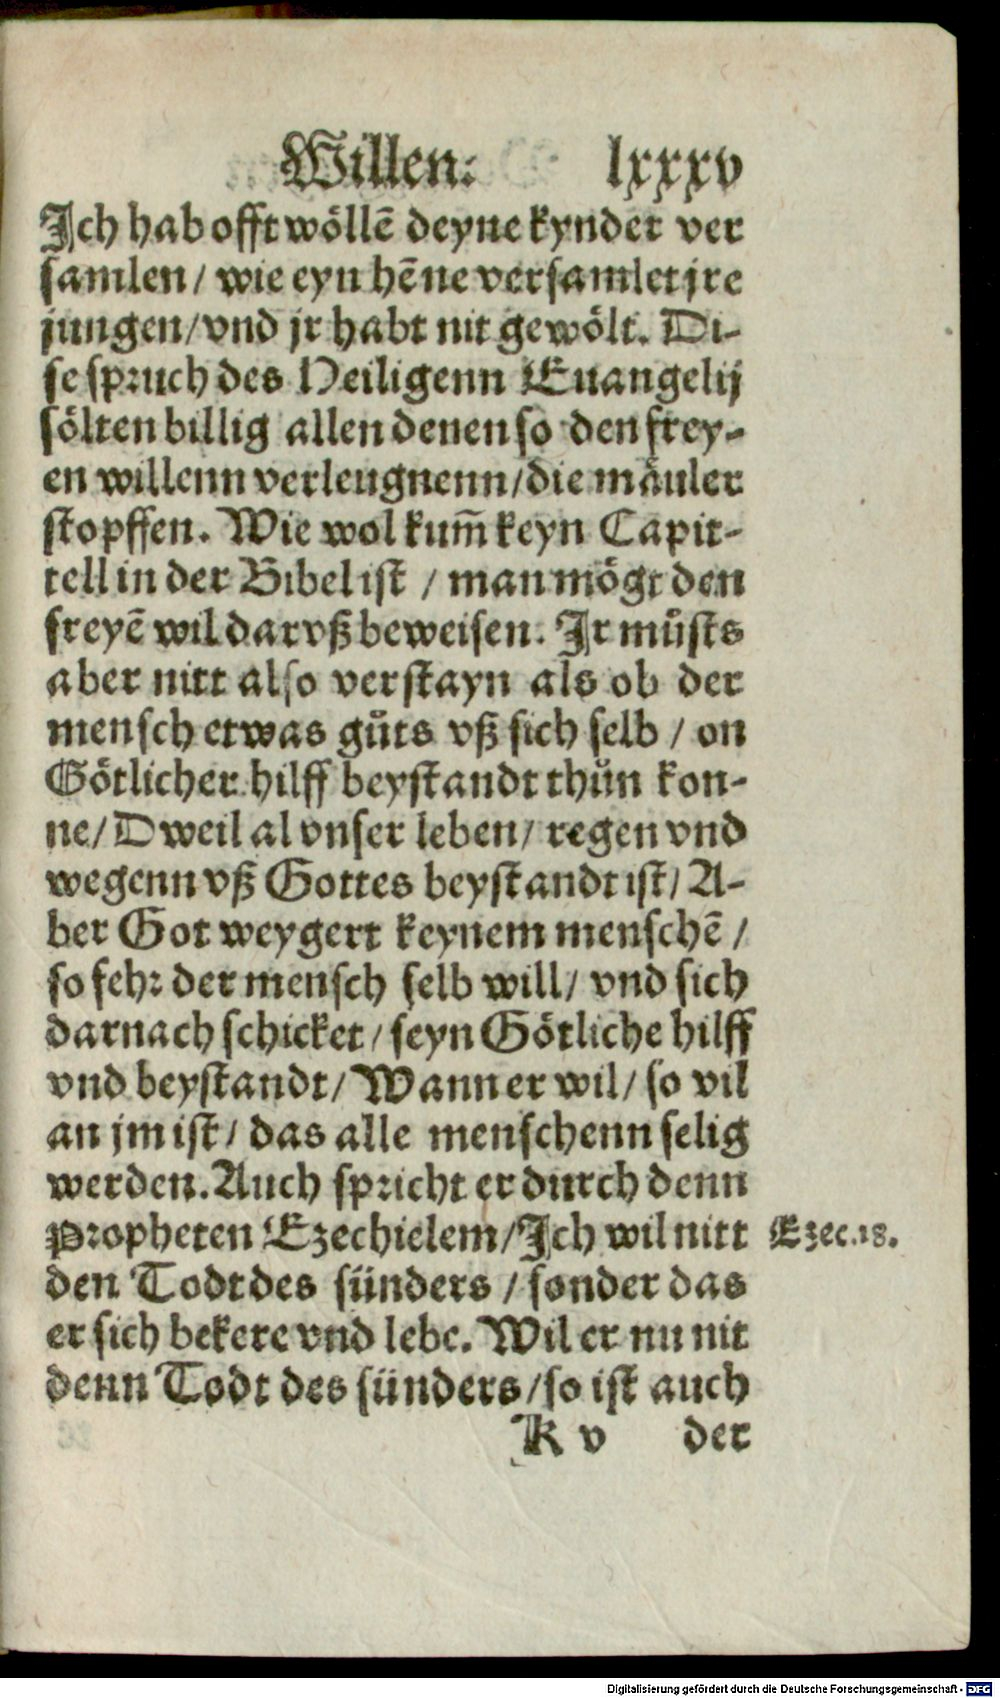 Willen. lxxxv
Jch hab offt wöllē deyne kynder ver
samlen / wie eyn hēne versamlet jre
jungen / vnd jr habt nit gewölt. Di-
se spruch des Heiligenn Euangelij
sölten billig allen denen so den frey-
en willenn verleugnenn / die mäuler
stopffen. Wie wol kum̄ keyn Capit-
tell in der Bibel ist / man mögt den
freyē wil darvß beweisen. Jr můsts
aber nitt also verstayn als ob der
mensch etwas gůts vß sich selb / on
Götlicher hilff beystandt thůn kon-
ne / Dweil al vnser leben / regen vnd
wegenn vß Gottes beystandt ist / A-
ber Got weygert keynem menschē /
so fehr der mensch selb will / vnd sich
darnach schicket / seyn Götliche hilff
vnd beystandt / Wann er wil / so vil
an jm ist / das alle menschenn selig
werden. Auch spricht er durch denn
Propheten Ezechielem / Jch wil nitt Ezec.18.
den Todt des sünders / sonder das
er sich bekere vnd lebe. Wil er nu nit
denn Todt des sünders / so ist auch
K v der
Digitalisierung gefördert durch die Deutsche Forschungsgemeinschaft - DFG